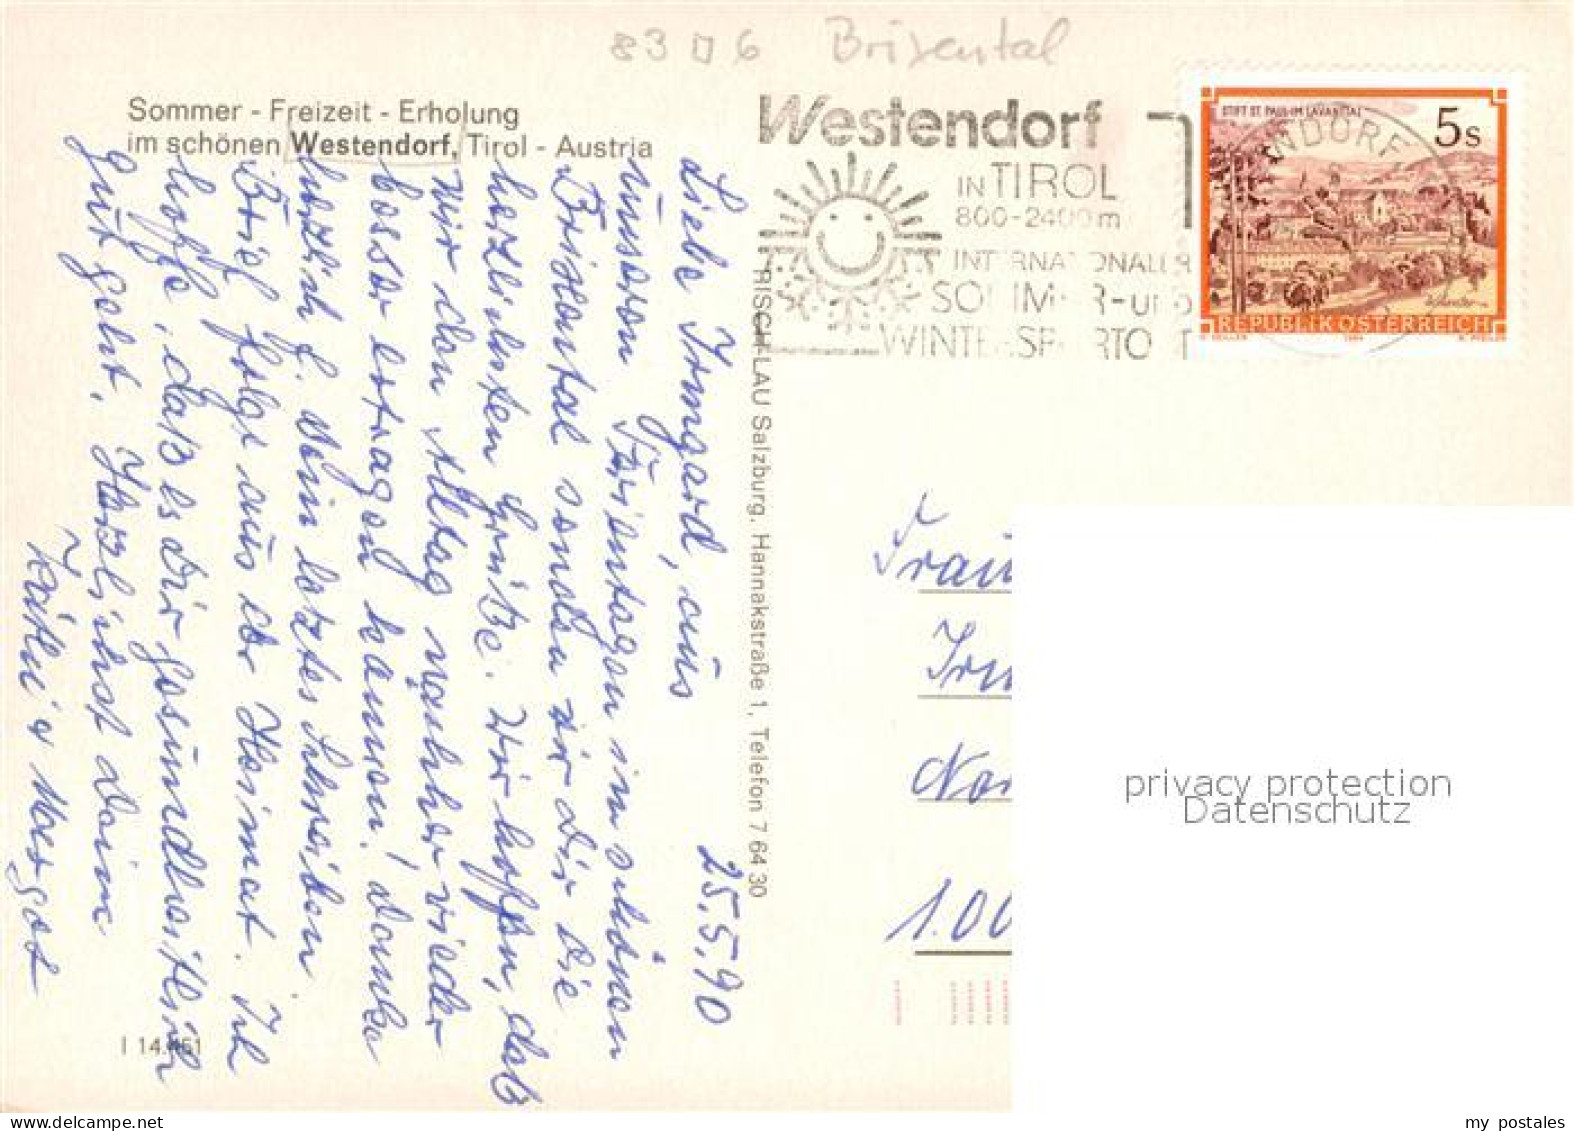 8306 Brixental
Sommer - Freizeit - Erholung
im schönen Westendorf, Tirol - Austria
Westendorf
IN TIROL
800-2400m
INTERNATIONALER
SOMMER-und
WINTERSPORTORT
NDORF
STIFT ST. PAUL IM LAVANTTAL
5s
REPUBLIK ÖSTERREICH
1984
RISCH-LAU Salzburg, Hannakstraße 1, Telefon 7 64 30
25.5.90
Liebe Irmgard, aus
unseren Ferientagen im schönen
Brixental senden wir Dir die
herzlichsten Grüße. Wir hoffen, daß
wir den Alltag nachher wieder
besser ertragen können! Danke
herzlich f. Dein letztes Schreiben.
Brief folgt aus der Heimat. Ich
hoffe, daß es Dir gesundheitlich
gut geht. Herzlichst Deine
Käthi u Margot
Frau
Irm
Nor
1.00
I 14.451
privacy protection
Datenschutz
my postales